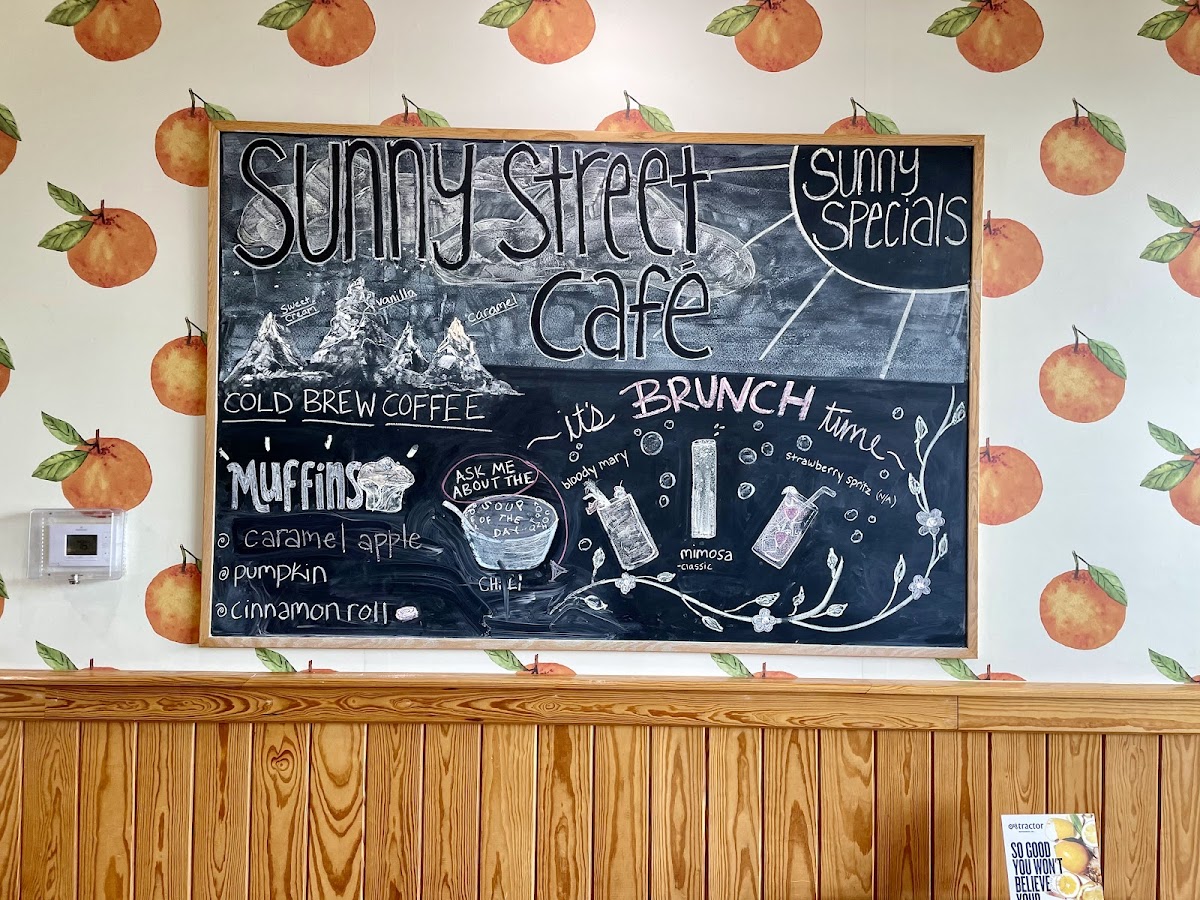 Sunny Street
Café
Sunny
Specials
Sweet
Cream
vanilla
caramel
COLD BREW COFFEE
it's BRUNCH time
Muffins
caramel apple
pumpkin
cinnamon roll
ASK ME
ABOUT THE
SOUP
OF THE
DAY
CHILI
bloody mary
mimosa
-classic
strawberry spritz (N/A)
tractor
SO GOOD
YOU WON'T
BELIEVE
YOUR